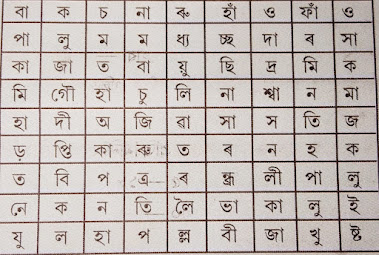 বা ক চ না ৰু হাঁ ও ফাঁ ও
পা লু ম ম ধ্য চ্ছ দা ৰ সা
কা জা ত বা য়ু ছি দ্ৰ মি ক
মি গৌ হা চু লি না শ্বা ন মা
হা দী অ জি ৱা সা স তি জ
ড় প্তি কা ৰু ত ৰ ন হ ক
ত বি প ত্ৰ ৰ ন্ধ্ৰ লী পা লু
নে ক ন তি লৈ ভা কা লু ই
যু ল হা প ল্ল বী জা খু ষ্ট